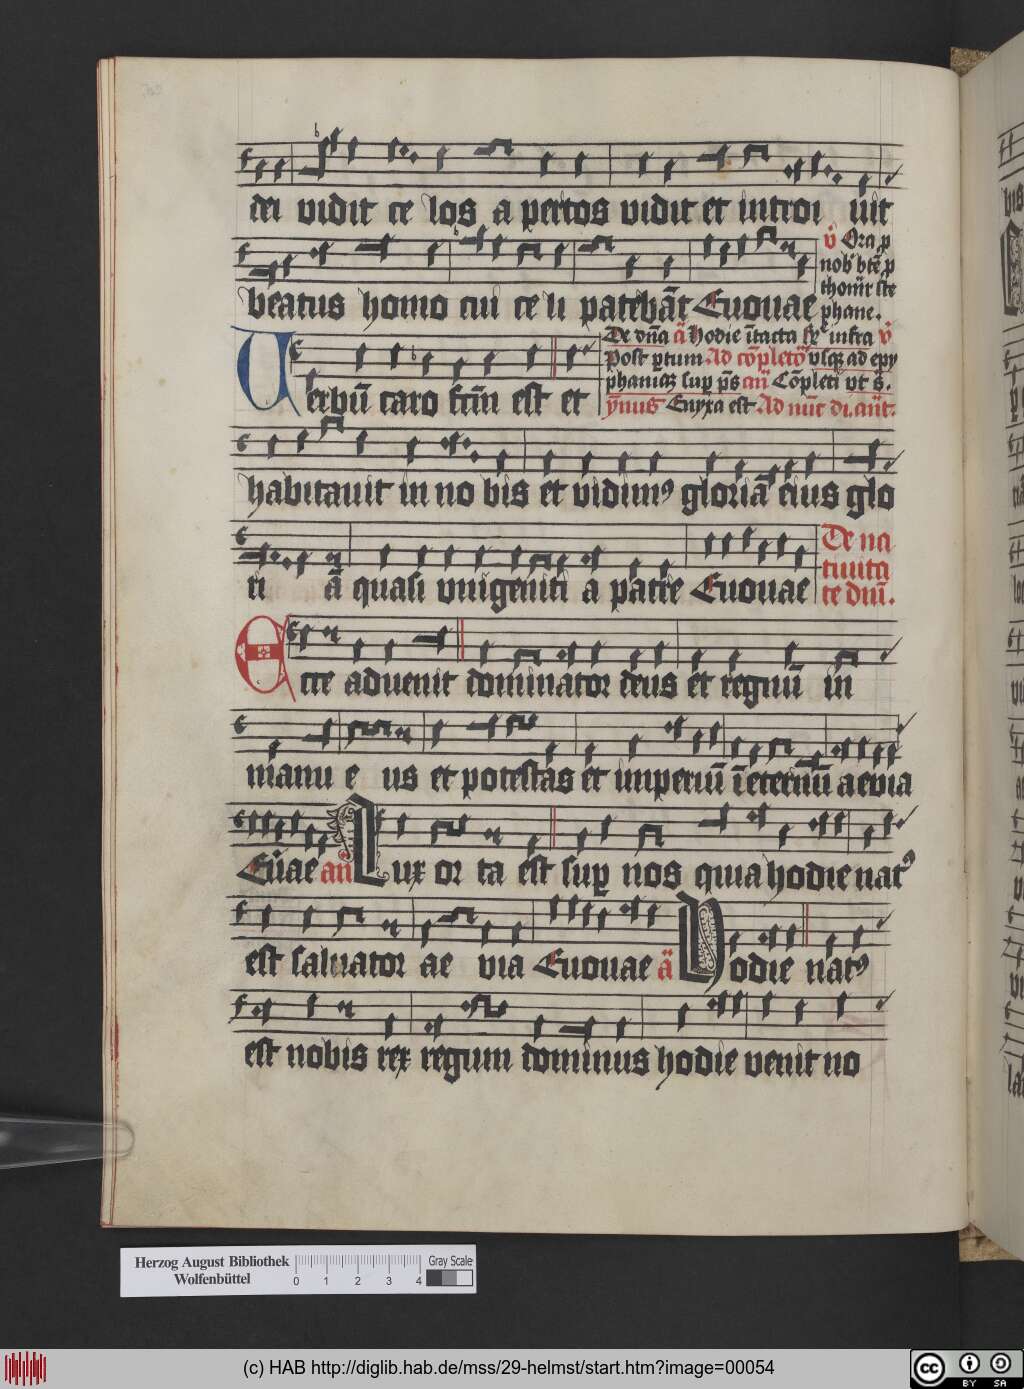 dei vidit ce los a pertos vidit et introi uit
beatus homo cui ce li patebāt Euouae
v̄ Ora p
nob̄ btē p
thom̄r ste
phane.
Uerbū caro fctm̄ est et
De dn̄a ā Hodie ītacta infra v̄
Post ptum Ad cōpletoᵐ vsqz ad epy
phaniaz sup ps̄ an̄ Cōpleti vt s̄.
ȳnus Enyxa est Ad nūc di. an̄t.
habitauit in no bis et vidimꝰ gloriā eius glo
ri ā quasi vnigeniti a patre Euouae
De na
tiuita
te dnī.
Ecce aduenit dominator deus et regnū in
manu e ius et potestas et imperiū ī eternū aevia
Eūae an̄ Lux or ta est sup nos quia hodie natꝰ
est saluator ae via Euouae ā Hodie natꝰ
est nobis rex regum dominus hodie venit no
Herzog August Bibliothek
Wolfenbüttel
0 1 2 3 4
Gray Scale
(c) HAB http://diglib.hab.de/mss/29-helmst/start.htm?image=00054
cc BY SA